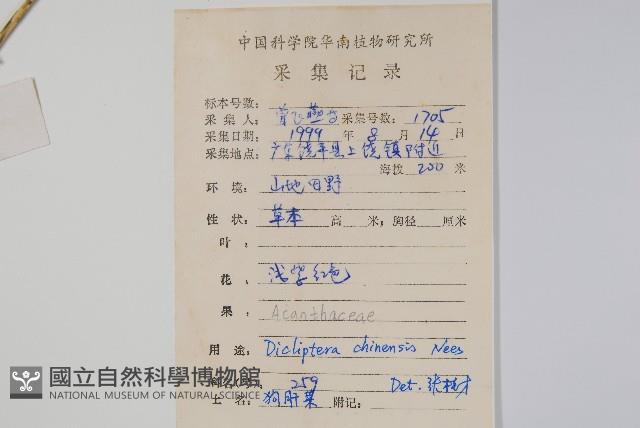 中国科学院华南植物研究所
采集记录
标本号数：
采集人： 曾飞燕 采集号数： 1705
采集日期： 1999 年 8 月 14 日
采集地点： 广东饶平县上饶镇附近
海拔 200 米
环境： 山地田野
性状： 草本 高 米；胸径 厘米
叶：
花： 浅紫红色
果： Acanthaceae
用途： Dicliptera chinensis Nees
259 Det. 张桂才
土名： 狗肝菜 附记：
國立自然科學博物館
NATIONAL MUSEUM OF NATURAL SCIENCE